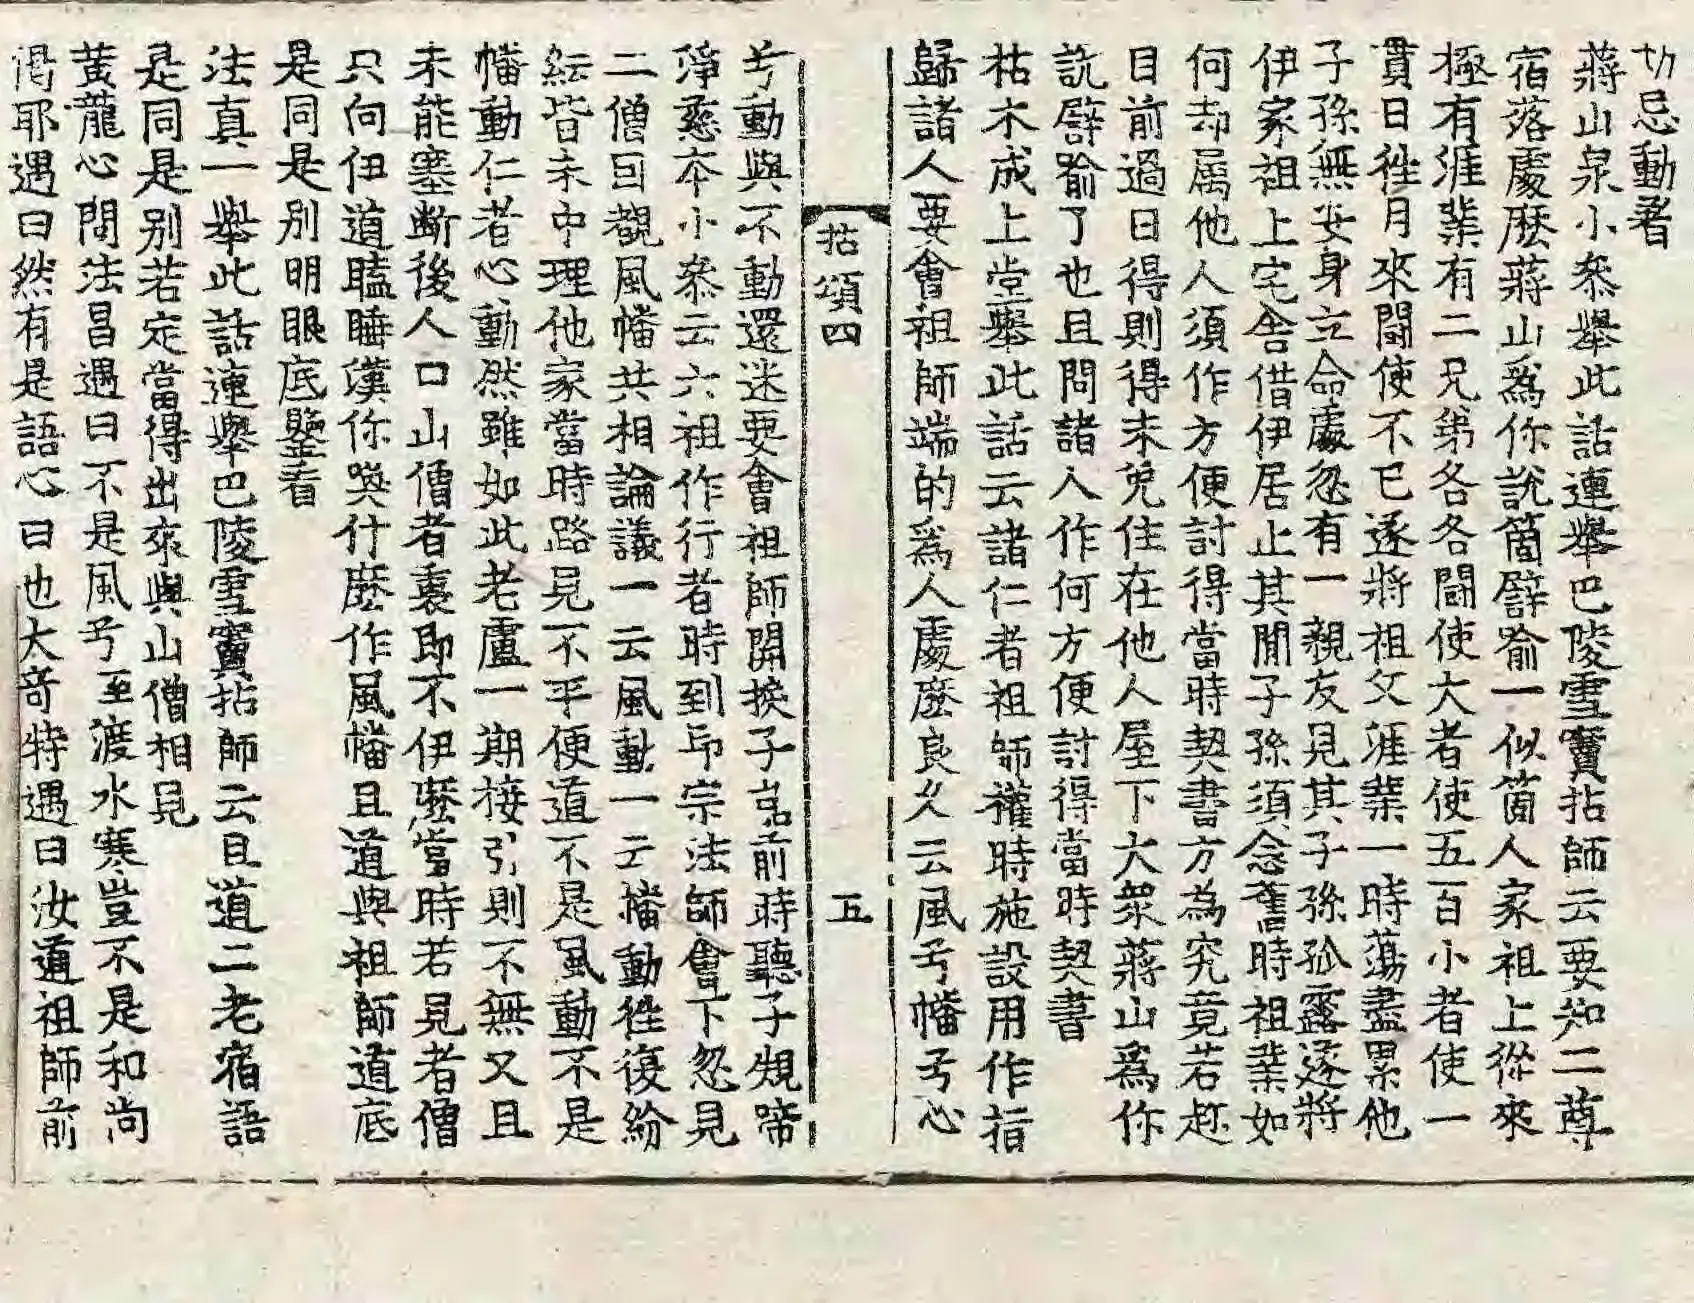 切忌動著
蔣山泉小叅舉此話連舉巴陵雪竇拈師云要知二尊
宿落處麽蔣山爲你說箇譬喻一似箇人家祖上從來
極有涯業有二兄弟各各闘使大者使五百小者使一
貫日往月來闘使不已遂將祖父涯業一時蕩盡累他
子孫無安身立命處忽有一親友見其子孫孤露遂將
伊家祖上宅舍借伊居止其閒子孫須念舊時祖業如
何却属他人須作方便討得當時契書方為究竟若趂
目前過日得則得未免住在他人屋下大衆蔣山爲你
說譬喻了也且問諸人作何方便討得當時契書
枯木成上堂舉此話云諸仁者祖師權時施設用作指
歸諸人要會祖師端的爲人處麽良久云風兮幡兮心
拈頌四
五
兮動與不動還迷要會祖師開換子䂐前時聽子規啼
淨慈本小叅云六祖作行者時到印宗法師會下忽見
二僧因覩風幡共相論議一云風動一云幡動往復紛
紜皆未中理他家當時路見不平便道不是風動不是
幡動仁者心動然雖如此老盧一期接引則不無又且
未能塞斷後人口山僧者裏即不伊麽當時若見者僧
只向伊道瞌睡漢你喚什麽作風幡且道與祖師道底
是同是别明眼底鑒看
法真一舉此話連舉巴陵雪竇拈師云且道二老宿語
是同是别若定當得出來與山僧相見
黃龍心問法昌遇曰不是風兮至渡水寒豈不是和尚
偈耶遇曰然有是語心曰也大奇特遇曰汝道祖師前